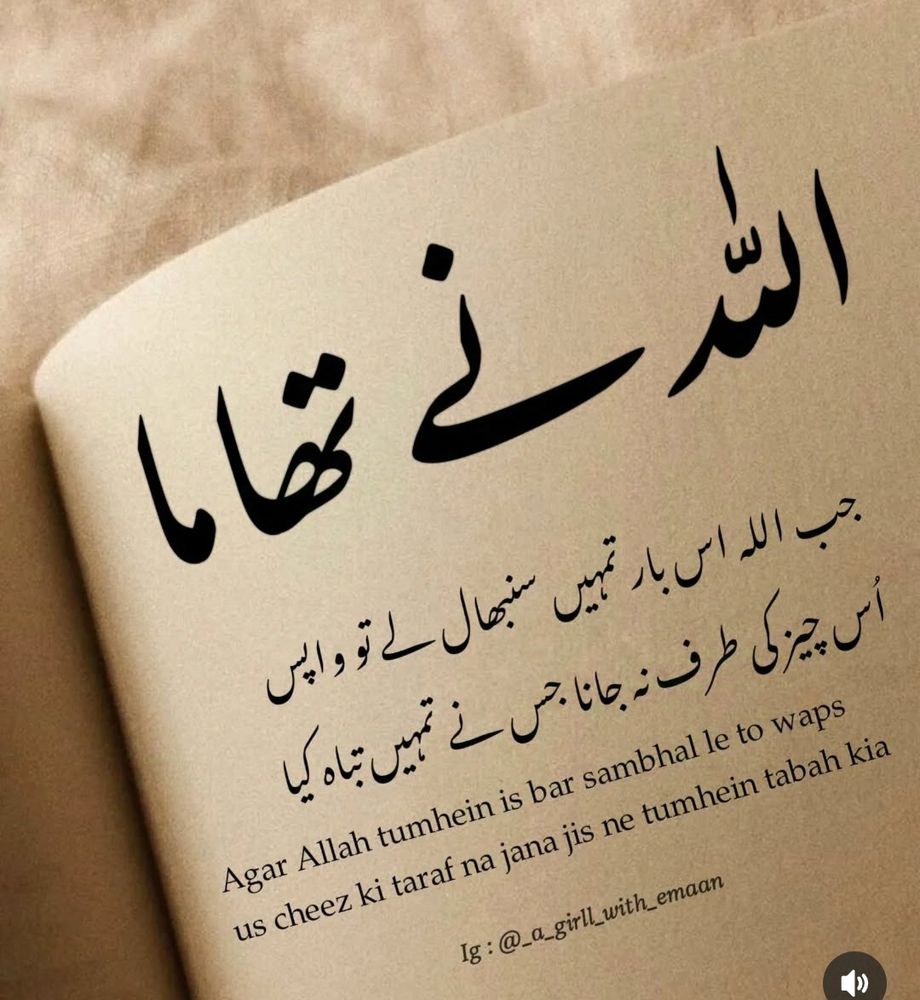 اللہ نے تھاما
جب اللہ اس بار تمہیں سنبھال لے تو واپس
اُس چیز کی طرف نہ جانا جس نے تمہیں تباہ کیا
Agar Allah tumhein is bar sambhal le to waps
us cheez ki taraf na jana jis ne tumhein tabah kia
Ig : @_a_girll_with_emaan